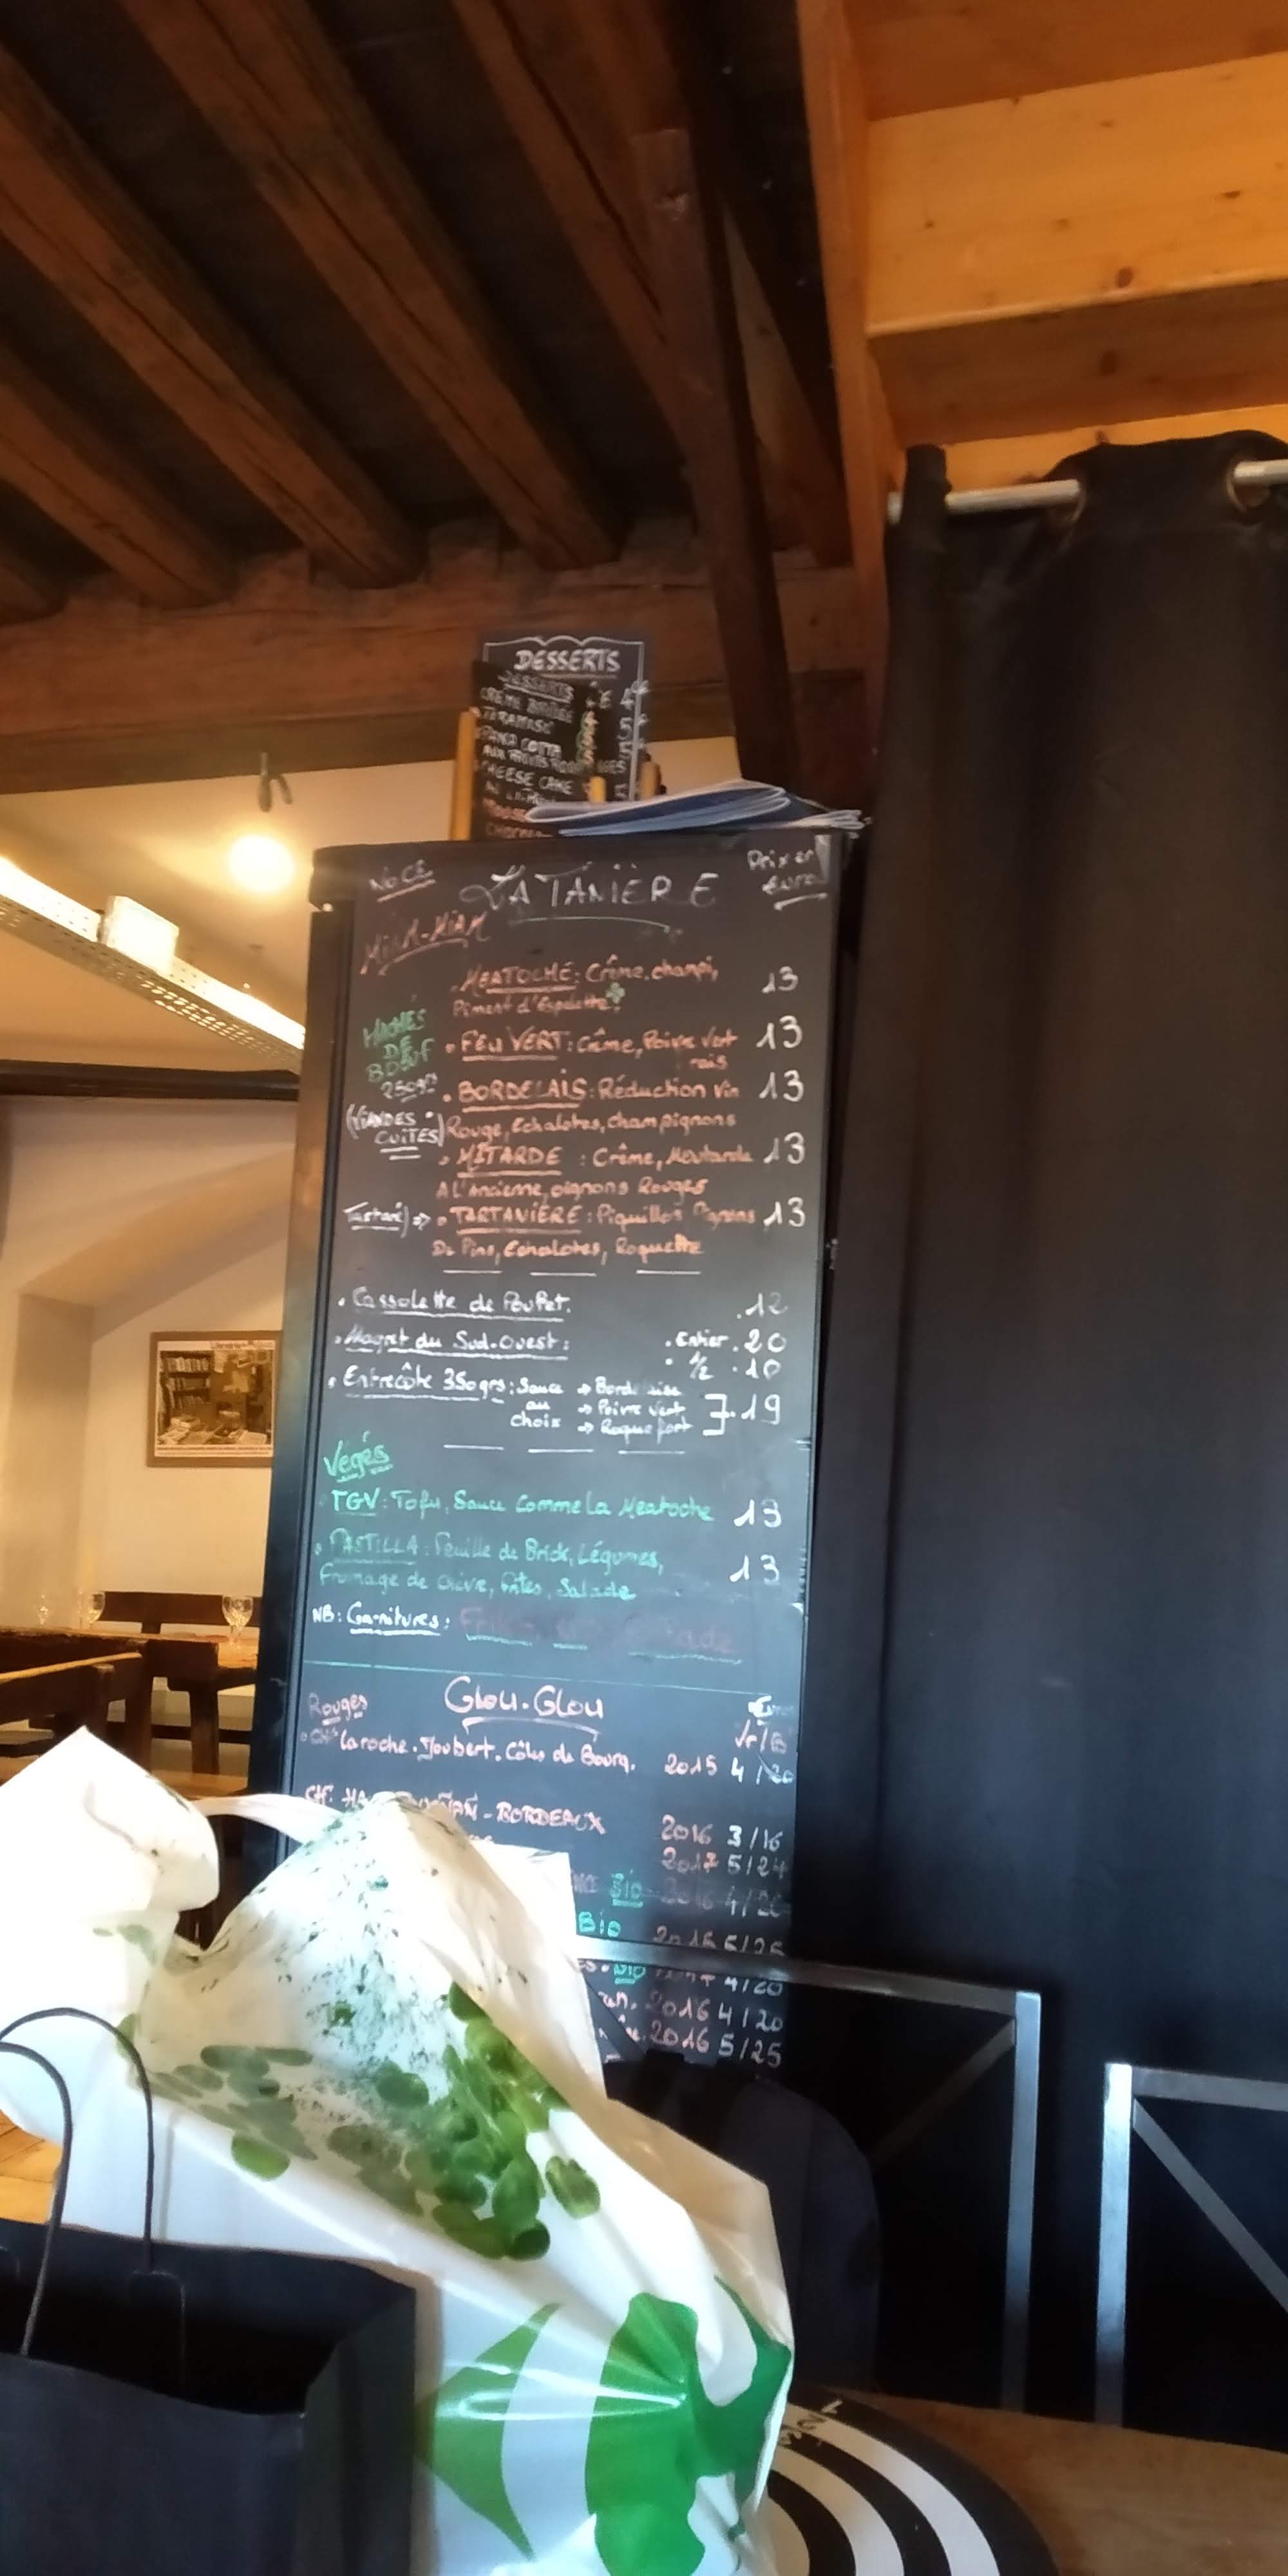 DESSERTS
DESSERTS
CRÈME BRÛLÉE
TIRAMISU
PANA COTTA
AUX FRUITS ROUGES
CHEESE CAKE
LA TANIÈRE
Prix en
euro
MIAM-MIAM
HACHÉS
DE
BOEUF
250grs
(VIANDES
CUITES)
. MEATOCHE: Crême, champi, 13
Piment d'Espelette.
. FEU VERT: Crême, Poivre Vert 13
. BORDELAIS: Réduction Vin 13
Rouge, Echalotes, champignons
. MÎTARDE : Crême, Moutarde 13
A L'Ancienne, oignons Rouges
Tartare) => . TARTANIÈRE: Piquillos Pignons 13
De Pins, Echalotes, Roquette
. Cassolette de Poulet. .12
. Magret du Sud-Ouest: . Entier . 20
. 1/2 . 10
. Entrecôte 350grs: Sauce → Bordelaise
au → Poivre Vert ].19
choix → Roquefort
Végés
. TGV: Tofu, Sauce Comme La Meatoche 13
. PASTILLA: Feuille de Brick, Légumes, 13
Fromage de chèvre, frites, Salade
NB: Garnitures:
Glou-Glou
Rouges
laroche. Joubert. Côtes de Bourg. 2015 4/20
CH. - BORDEAUX 2016 3/16
2017 5/24
BIO 2016 4/20
BIO 2015 5/25
BIO 4/20
2016 4/20
2016 5/25